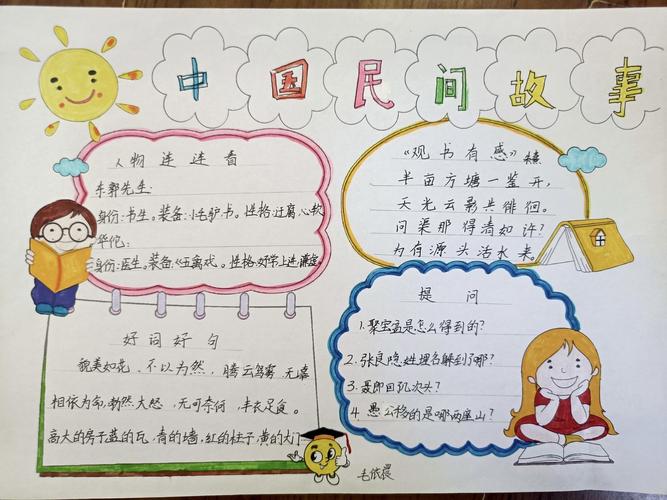 中国民间故事
人物连连看
东郭先生:
身份:书生。装备:小毛驴.书。性格:迂腐、心软
华佗:
身份:医生。装备:《五禽戏。性格:好学上进.谦虚。
《观书有感》
半亩方塘一鉴开,
天光云影共徘徊。
问渠那得清如许?
为有源头活水来。
好词好句
貌美如花、不以为然,腾云驾雾
相依为命,勃然大怒,无可奈何,丰衣足食。
高大的房子蓝的瓦,青的墙,红的柱子,黄的大门
提问
1.聚宝盆是怎么得到的?
2.张良隐姓埋名躲到了哪?
3.聂郎回几次头?
4 愚公移的是哪两座山?
毛依晨